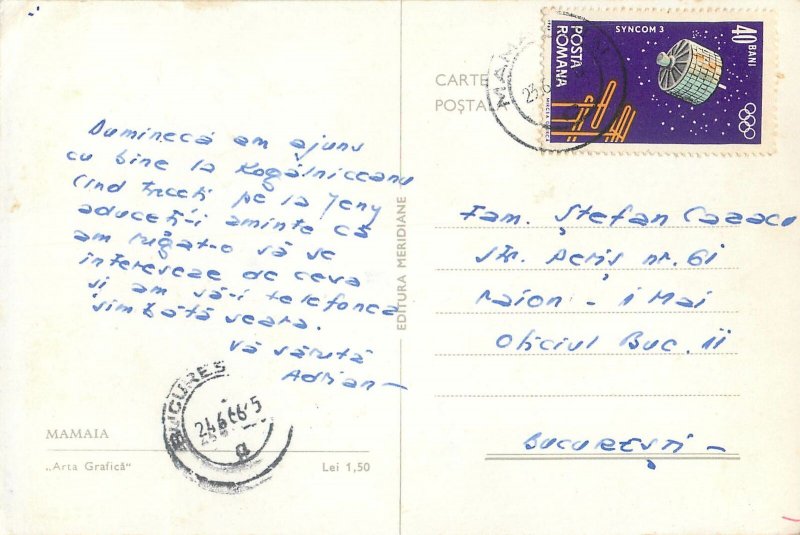 Duminecă am ajuns
cu bine la Kogălniceanu
Cînd treceți pe la Jeny
aduceți-i aminte că
am rugat-o să se
intereseze de ceva
și am să-i telefonez
sîmbătă seara.
Vă sărută
Adrian
BUCUREȘ
24.6.66.5
MAMAIA
„Arta Grafică"
Lei 1,50
EDITURA MERIDIANE
CARTE
POȘTALĂ
MAMA
23.6
POSTA
ROMANA
SYNCOM 3
40 BANI
Fam. Ștefan Cazacu
Str. Acriș nr. 61
Raion - 1 Mai
Oficiul Buc. ii
BUCUREȘTI -